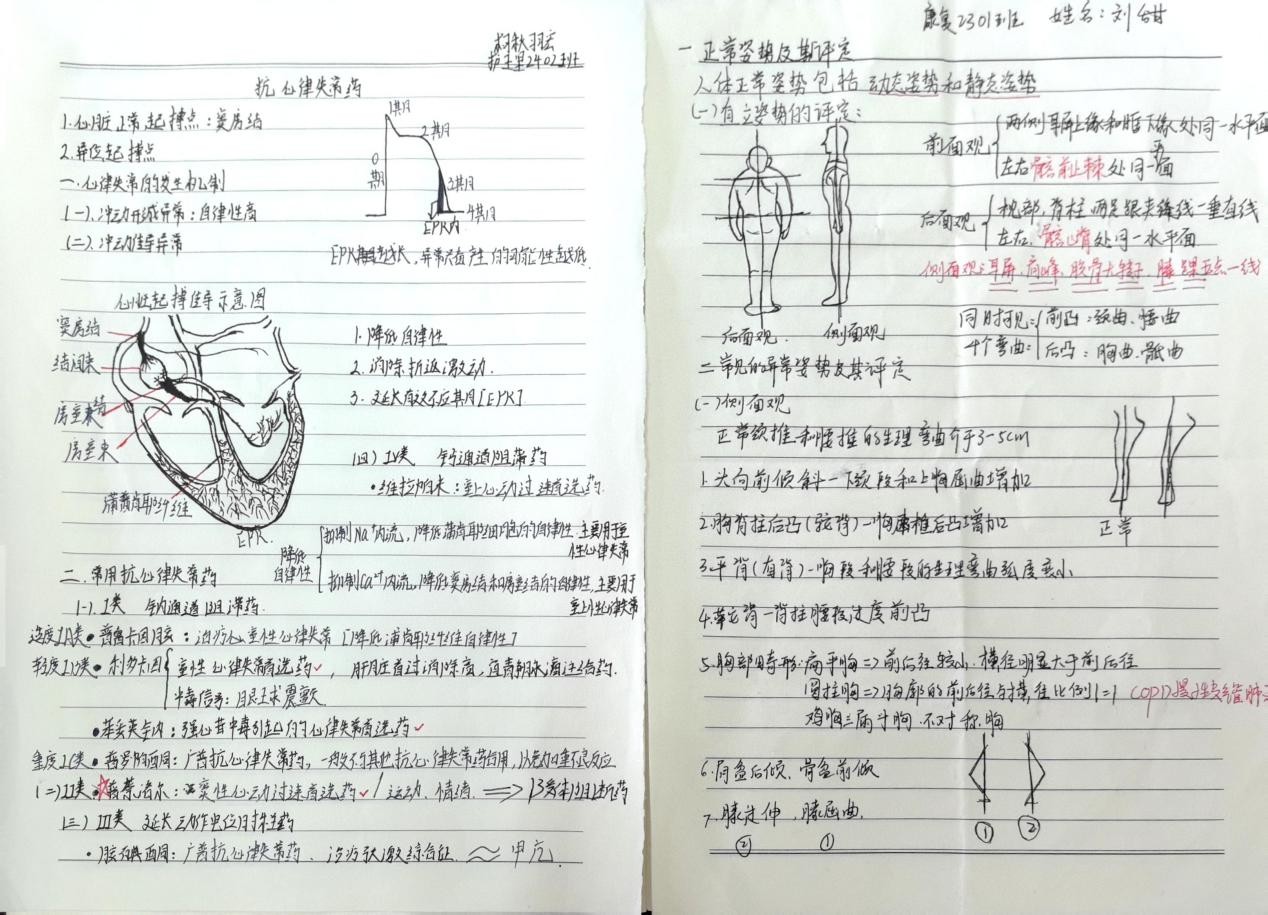 护理2402班
抗心律失常药
1.心脏正常起搏点：窦房结
2.异位起搏点
一.心律失常的发生机制
(一).冲动形成异常：自律性高
(二).冲动传导异常
1期
2期
0期
3期
4期
EPK内
异常兴奋产生的可能性越低.
心脏起搏传导示意图
窦房结
结间束
房室结
房室束
蒲肯野纤维
EPK.
1.降低自律性
2.消除折返激动.
3.延长有效不应期[EPK]
(四)IV类 钙通道阻滞药
•维拉帕米：室上心动过速首选药.
降低自律性
抑制Na⁺内流，降低蒲肯野细胞的自律性.主要用于室性心律失常
抑制Ca²⁺内流，降低窦房结和房室结的自律性，主要用于室上性心律失常
二.常用抗心律失常药
(一).I类 钠通道阻滞药.
适度IA类•普鲁卡因胺：治疗心室性心律失常[降低浦肯野纤维自律性]
轻度IB类•利多卡因
室性心律失常首选药✓，肝脏首过消除高，宜静脉滴注给药.
中毒信号：眼球震颤
•苯妥英钠：强心苷中毒引起的心律失常首选药✓
重度IC类•普罗帕酮：广谱抗心律失常药，一般不与其他抗心律失常药合用，以免加重不良反应
(二)II类•☆普萘洛尔：窦性心动过速首选药✓/运动、情绪. ⟹β受体阻断药
(三)III类 延长动作电位时程药
•胺碘酮：广谱抗心律失常药、治疗预激综合征. ≈甲亢.
康复2301班 姓名：刘甜
一 正常姿势及其评定
人体正常姿势包括动态姿势和静态姿势
(一)直立姿势的评定：
前面观
两侧耳屏上缘和眶下缘处同一水平面
左右髂前上棘处同一平面
后面观
枕部，脊柱，两足跟夹缝线一垂直线
左右，髂嵴处同一水平面
侧面观：耳屏，肩峰，股骨大转子，膝，踝五点一线
后面观.
侧面观
同时可见4个弯曲：
前凸：颈曲、腰曲
后凸：胸曲、骶曲
二 常见的异常姿势及其评定
(一)侧面观
正常颈椎和腰椎的生理弯曲介于3-5cm
1.头向前倾斜—下颈段和上胸屈曲增加
2.胸脊柱后凸(驼背)—胸椎后凸增加
3.平背(直背)—胸段和腰段的生理弯曲弧度变小
4.鞍背—背柱腰段过度前凸
正常
5.胸部畸形：扁平胸⇒前后径较小.横径明显大于前后径
圆柱胸⇒胸廓的前后径与横径比例1=1 COPD慢性支气管肺
鸡胸 漏斗胸.不对称胸
6.骨盆后倾、骨盆前倾
7.膝过伸，膝屈曲.
② ①
① ②